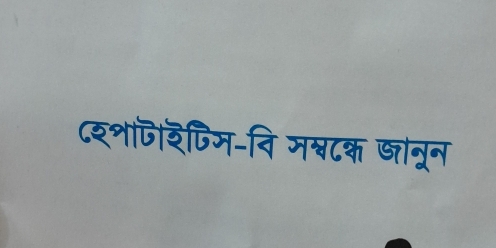 হেপাটাইটিস-বি সম্বন্ধে জানুন